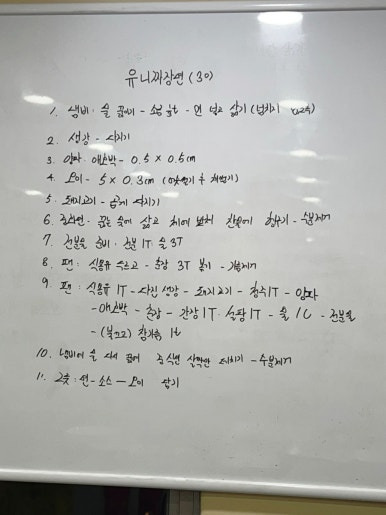 유니짜장면 (30)
1. 냄비: 물 끓이기 - 소금 - 면 넣고 삶기 (넘치지
2. 생강 - 다지기
3. 양파. 애호박 - 0.5 x 0.5cm
4. 오이 - 5 x 0.3cm (어슷썰기 후 채썰기)
5. 돼지고기 - 곱게 다지기
6. 중화면 - 끓는 물에 삶고 체에 밭쳐 찬물에 헹구기 - 수분제거
7. 전분물 준비 : 전분 1T : 물 3T
8. 팬 : 식용유 두르고 - 춘장 3T 볶기 - 기름제거
9. 팬 : 식용유 1T - 다진 생강 - 돼지고기 - 청주 1T - 양파
- 애호박 - 춘장 - 간장 1T. 설탕 1T - 물 1C - 전분물
- (불끄고) 참기름 1t
10. 냄비에 물 끓여 중식면 살짝만 데치기 - 수분제거
11. 그릇 : 면 - 소스 - 오이 담기